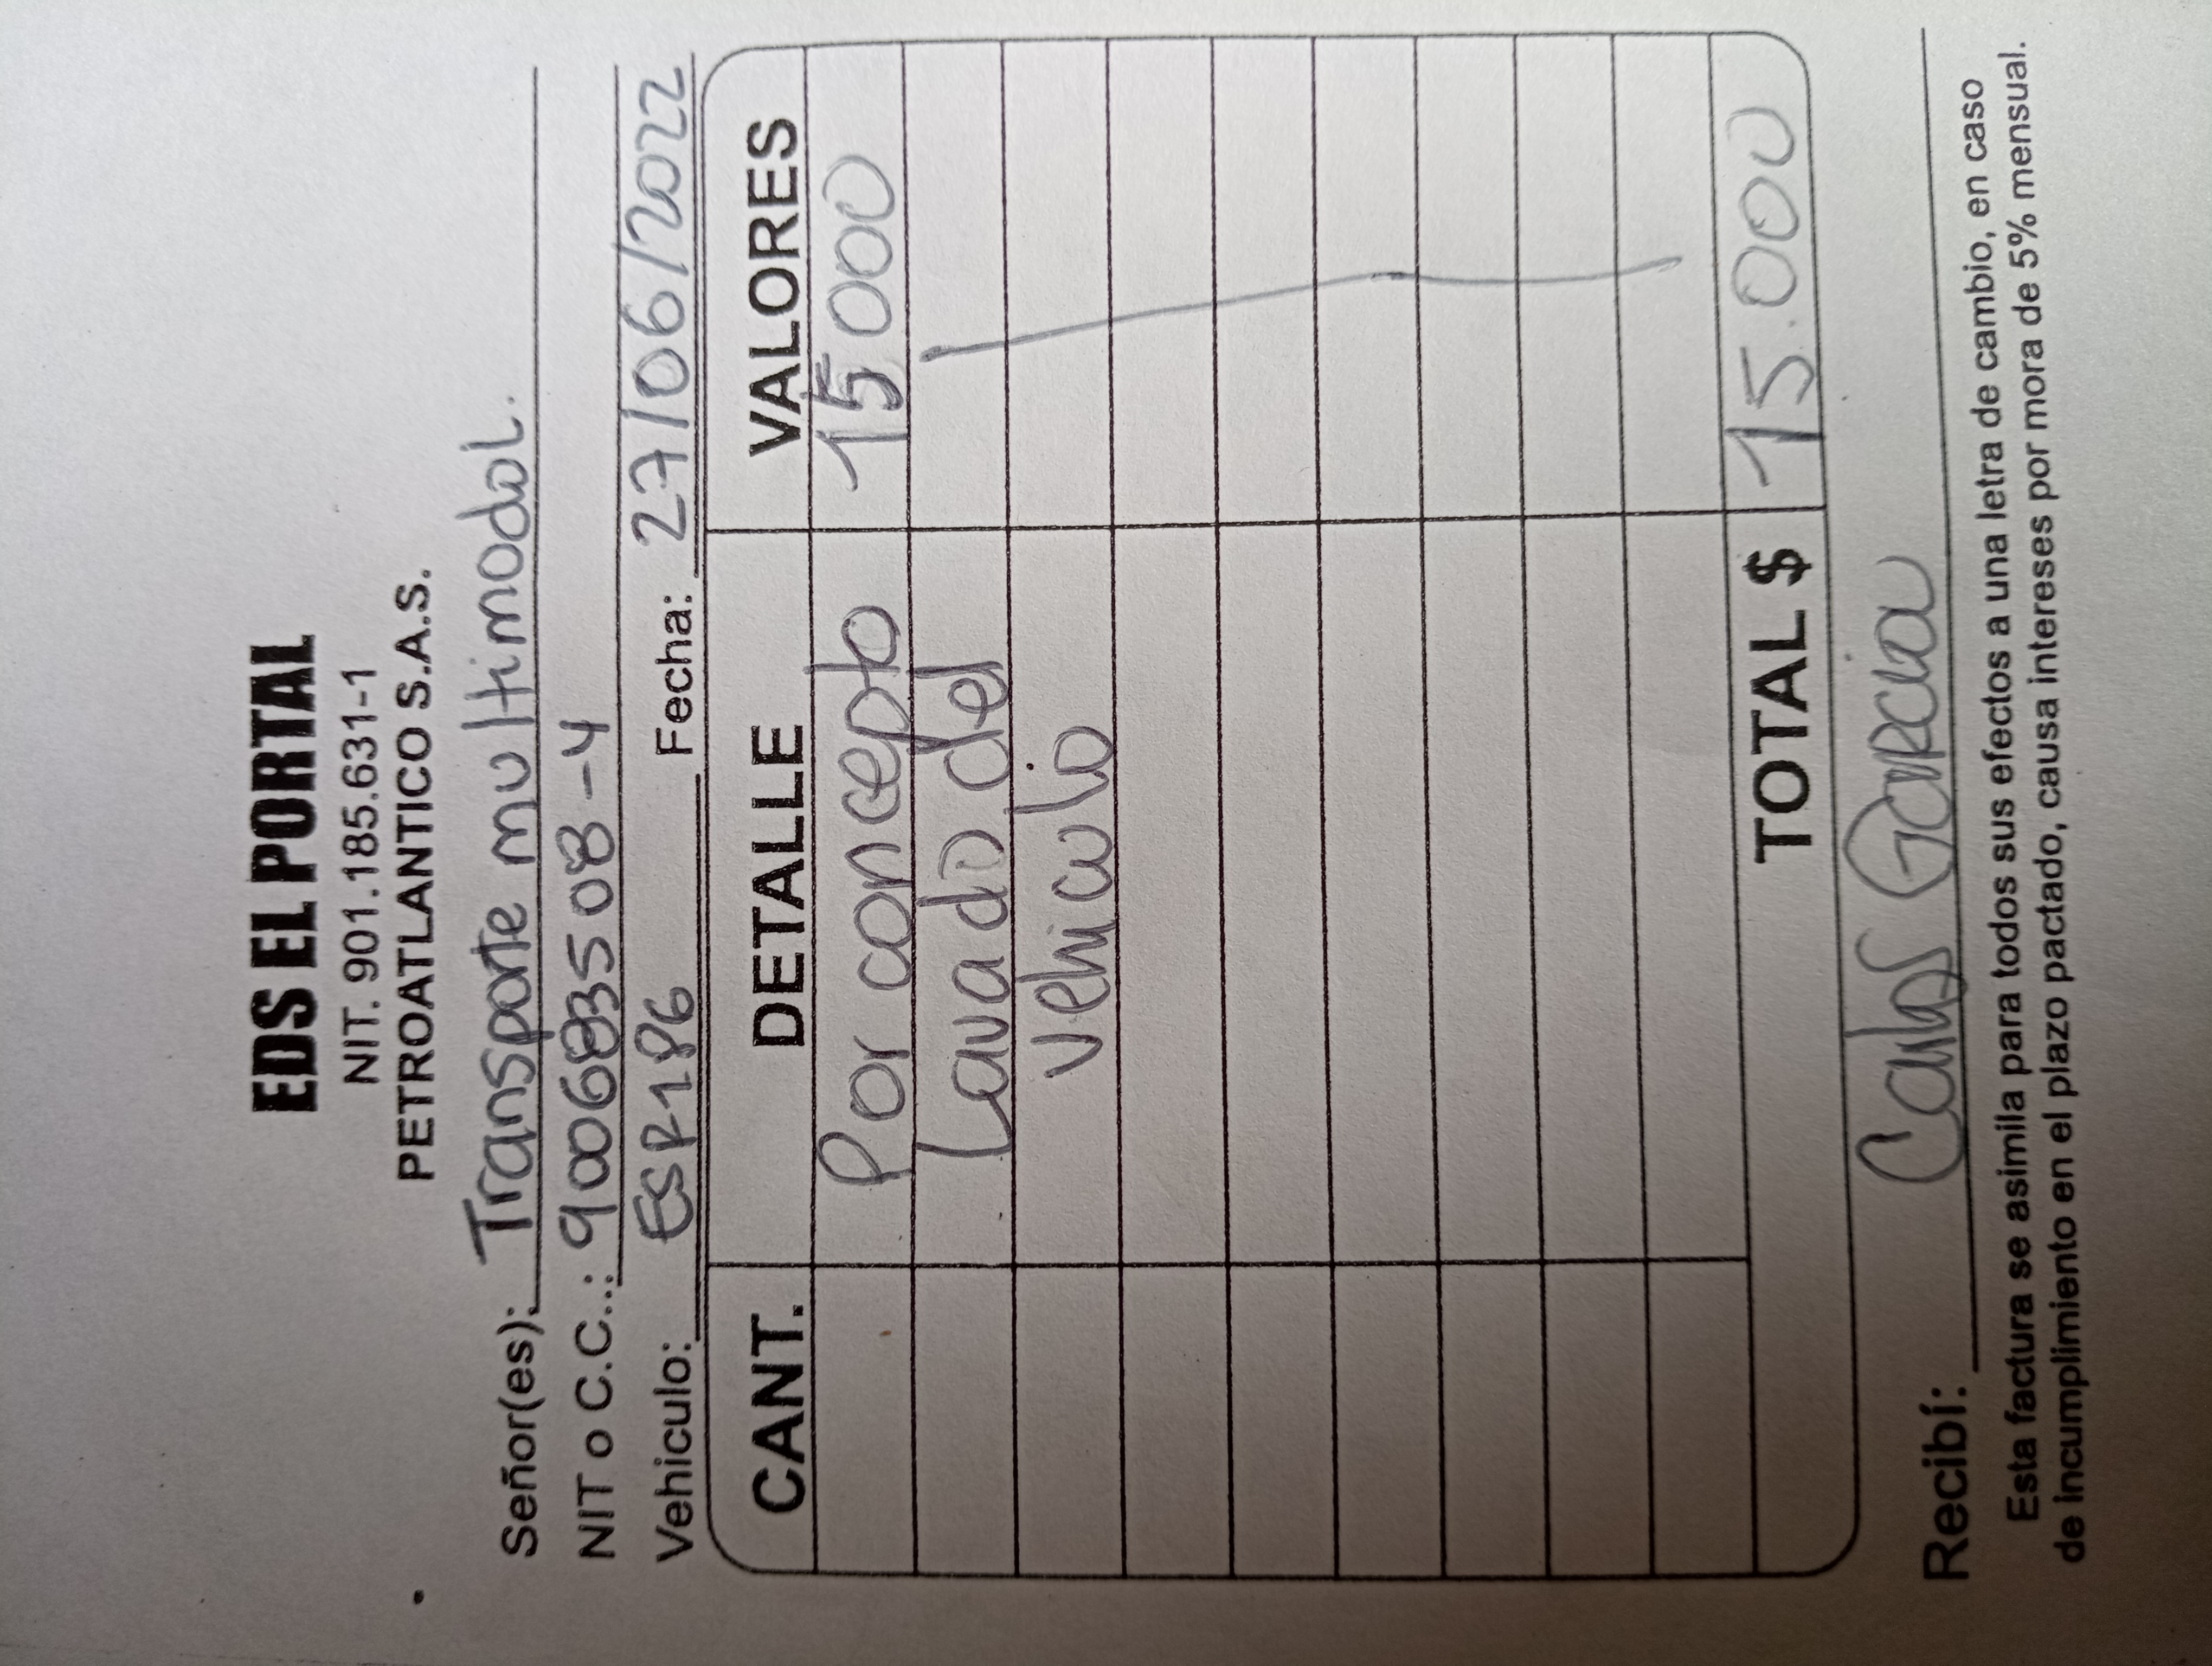 EDS EL PORTAL
NIT. 901.185.631-1
PETROATLANTICO S.A.S.
Señor(es): Transporte multimodal.
NIT o C.C.: 900683508-4
Vehiculo: ESR186 Fecha: 27/06/2022
CANT. DETALLE VALORES
Por concepto 15000
Lavado del
vehiculo
TOTAL $ 15.000
Recibí: Carlos Garcia
Esta factura se asimila para todos sus efectos a una letra de cambio, en caso
de incumplimiento en el plazo pactado, causa intereses por mora de 5% mensual.